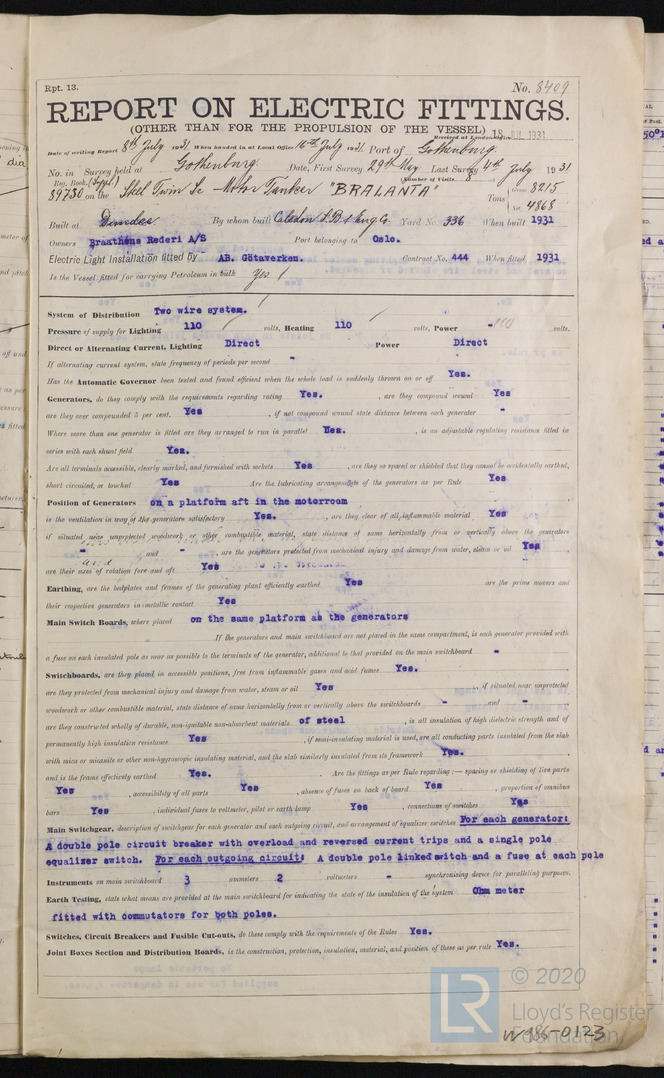 Rpt. 13.
No. 8409
REPORT ON ELECTRIC FITTINGS.
(OTHER THAN FOR THE PROPULSION OF THE VESSEL)
Received at London Office 18 JUL 1931
Date of writing Report 8th July 1931 When handed in at Local Office 16th July 1931 Port of Gothenburg.
No. in Survey held at Gothenburg. Date, First Survey 29th May Last Survey 4th July 1931
Reg. Book. (Suppl.) (Number of Visits 8
89730 on the Steel Twin Sc Motor Tanker "BRALANTA" Tons Gross 8215
Net 4868
Built at Dundee By whom built Caledon S.B & Eng. Co. Yard No. 336 When built 1931
Owners Braathens Rederi A/S Port belonging to Oslo.
Electric Light Installation fitted by AB. Götaverken. Contract No. 444 When fitted 1931
Is the Vessel fitted for carrying Petroleum in bulk Yes
System of Distribution Two wire system.
Pressure of supply for Lighting 110 volts, Heating 110 volts, Power 110 volts.
Direct or Alternating Current, Lighting Direct Power Direct
If alternating current system, state frequency of periods per second -
Has the Automatic Governor been tested and found efficient when the whole load is suddenly thrown on or off Yes.
Generators, do they comply with the requirements regarding rating Yes. , are they compound wound Yes
are they over compounded 5 per cent. Yes , if not compound wound state distance between each generator -
Where more than one generator is fitted are they arranged to run in parallel Yes. , is an adjustable regulating resistance fitted in
series with each shunt field Yes.
Are all terminals accessible, clearly marked, and furnished with sockets Yes , are they so spaced or shielded that they cannot be accidentally earthed,
short circuited, or touched Yes Are the lubricating arrangements of the generators as per Rule Yes
Position of Generators on a platform aft in the motorroom
is the ventilation in way of the generators satisfactory Yes. , are they clear of all inflammable material Yes
if situated near unprotected woodwork or other combustible material, state distance of same horizontally from or vertically above the generators
- and - , are the generators protected from mechanical injury and damage from water, steam or oil Yes
are their axes of rotation fore and aft Yes
Earthing, are the bedplates and frames of the generating plant efficiently earthed Yes are the prime movers and
their respective generators in metallic contact Yes
Main Switch Boards, where placed on the same platform as the generators
If the generators and main switchboard are not placed in the same compartment, is each generator provided with
a fuse on each insulated pole as near as possible to the terminals of the generator, additional to that provided on the main switchboard -
Switchboards, are they placed in accessible positions, free from inflammable gases and acid fumes Yes.
are they protected from mechanical injury and damage from water, steam or oil Yes , if situated near unprotected
woodwork or other combustible material, state distance of same horizontally from or vertically above the switchboards - and -
are they constructed wholly of durable, non-ignitable non-absorbent materials of steel , is all insulation of high dielectric strength and of
permanently high insulation resistance Yes , if semi-insulating material is used, are all conducting parts insulated from the slab
with mica or micanite or other non-hygroscopic insulating material, and the slab similarly insulated from its framework Yes.
and is the frame effectively earthed Yes. Are the fittings as per Rule regarding :— spacing or shielding of live parts
Yes , accessibility of all parts Yes , absence of fuses on back of board Yes , proportion of omnibus
bars Yes , individual fuses to voltmeter, pilot or earth lamp Yes , connections of switches Yes
Main Switchgear, description of switchgear for each generator and each outgoing circuit, and arrangement of equalizer switches For each generator:
A double pole circuit breaker with overload and reversed current trips and a single pole
equalizer switch. For each outgoing circuit: A double pole linked switch and a fuse at each pole
Instruments on main switchboard 3 ammeters 2 voltmeters - synchronising device for paralleling purposes.
Earth Testing, state what means are provided at the main switchboard for indicating the state of the insulation of the system Ohm meter
fitted with commutators for both poles.
Switches, Circuit Breakers and Fusible Cut-outs, do these comply with the requirements of the Rules Yes.
Joint Boxes Section and Distribution Boards, is the construction, protection, insulation, material, and position of these as per rule Yes.
© 2020
LR
Lloyd's Register
Foundation
W986-0123